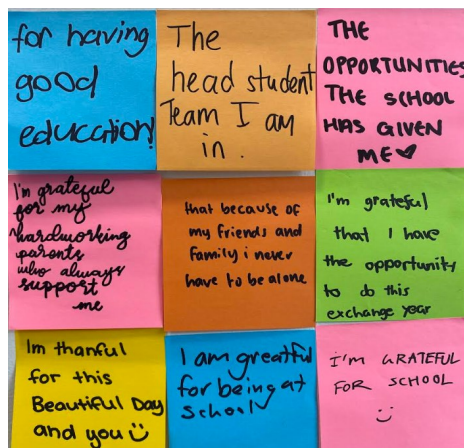 for having
good
education!
The
head student
Team I am
in.
THE
OPPORTUNITIES
THE SCHOOL
HAS GIVEN
ME♥
I'm grateful
for my
hardworking
parents
who always
support
me
that because of
my friends and
family i never
have to be alone
I'm grateful
that I have
the opportunity
to do this
exchange year
Im thanful
for this
Beautiful Day
and you ☺
I am greatful
for being at
school
I'M GRATEFUL
FOR SCHOOL
:)